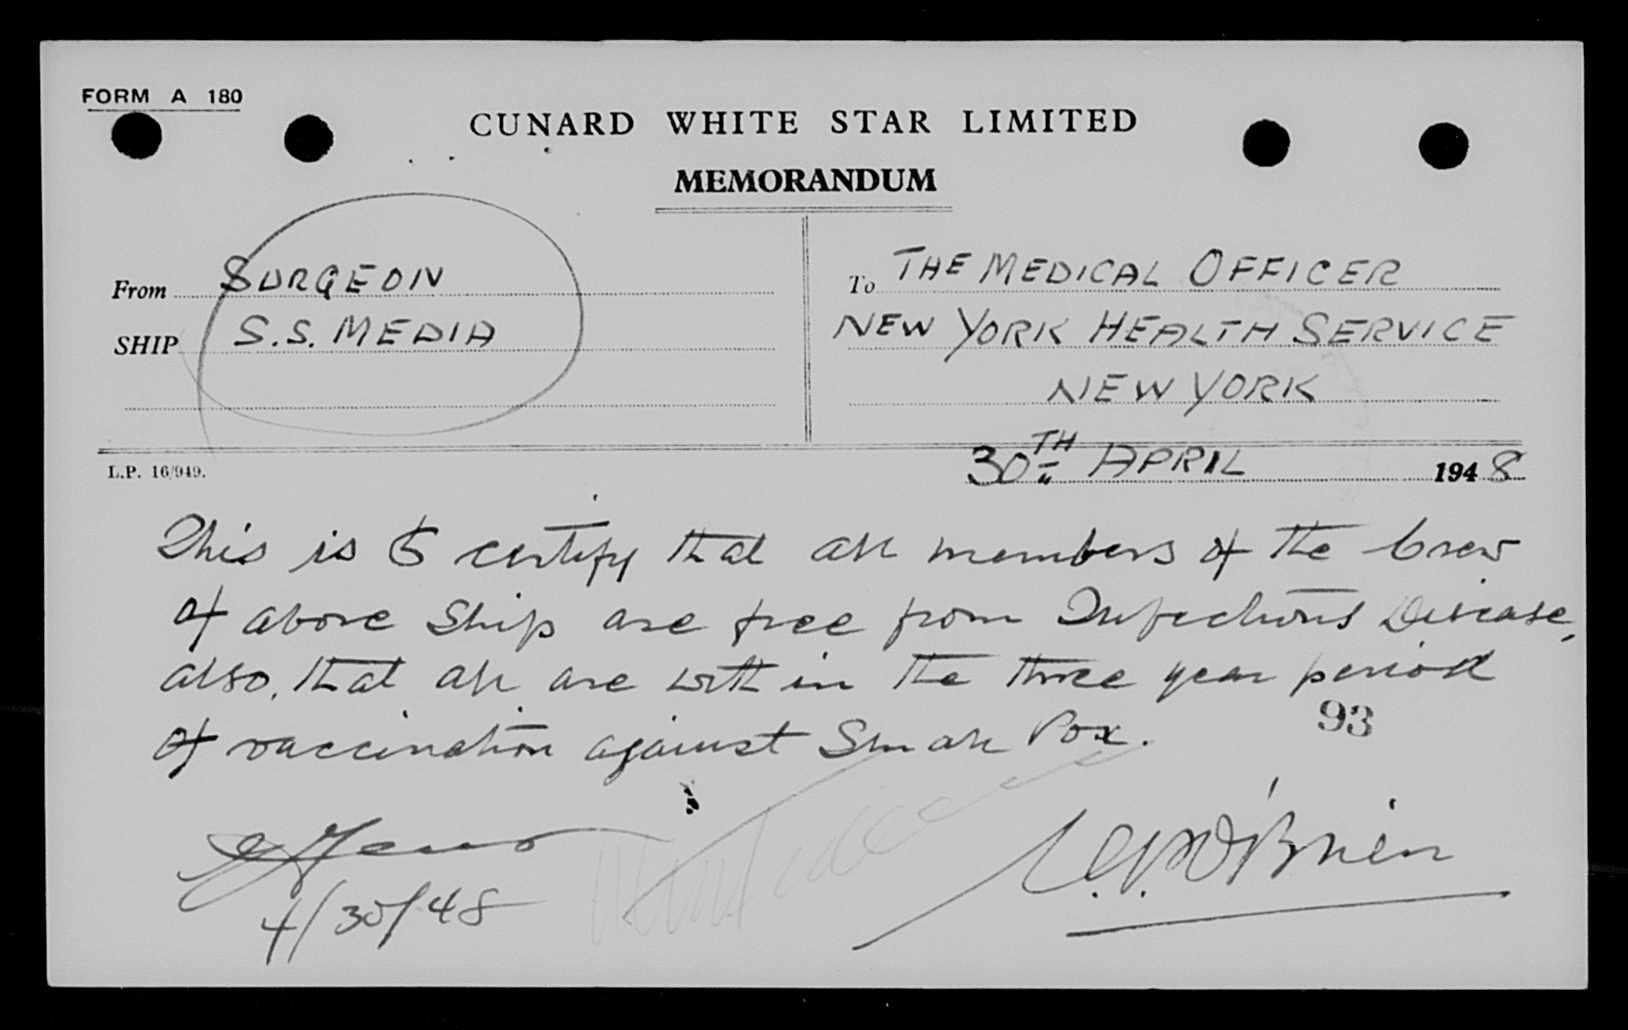 FORM A 180
CUNARD WHITE STAR LIMITED
MEMORANDUM
From SURGEON
SHIP S.S. MEDIA
To THE MEDICAL OFFICER
NEW YORK HEALTH SERVICE
NEW YORK
L.P. 16/949.
30TH APRIL 1948
This is to certify that all members of the Crew
of above Ship are free from Infectious Disease,
also, that all are within the three year period
of vaccination against Small Pox.
93
O'Brien
4/30/48